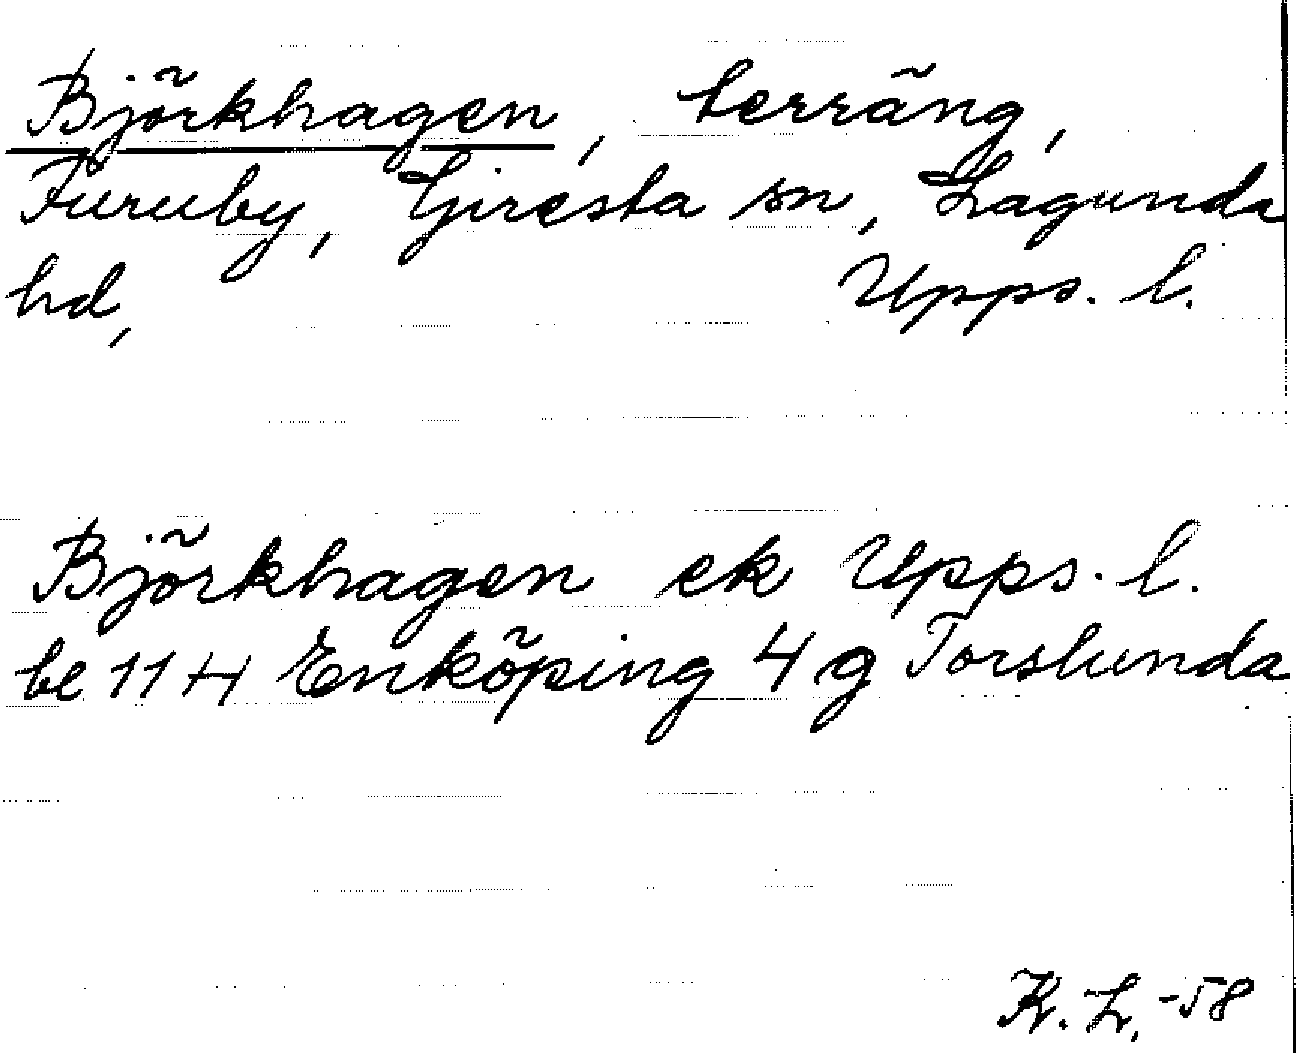 Björkhagen, terräng,
Furuby, Giresta sn, Lagunda
hd, Upps. l.
Björkhagen ek Upps. l.
be 11 H Enköping 4 g Torslunda
K. L, -58